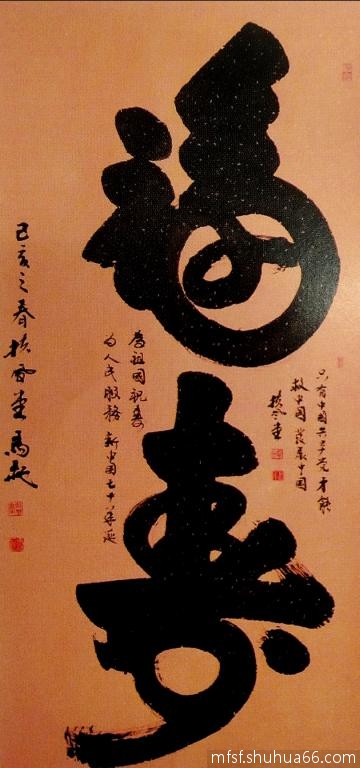 福寿
只有中国共产党才能
救中国 发展中国
扶风堂
为祖国祝寿
为人民服务 新中国七十华诞
己亥之春扶风堂马
mfsf.shuhua66.com